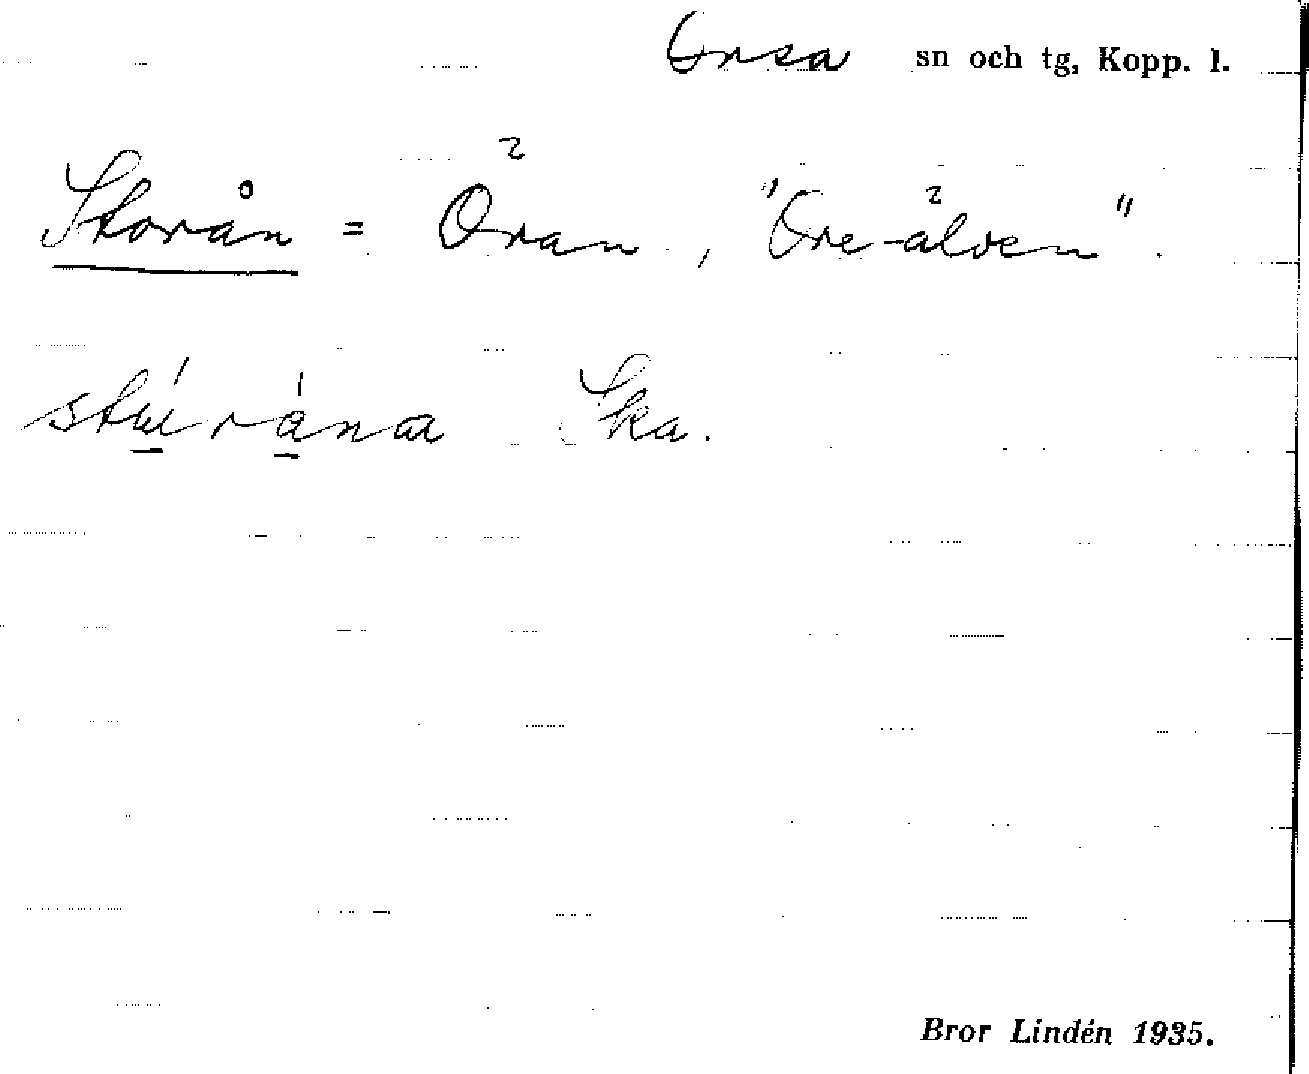 Orsa sn och tg, Kopp. l.
Storån = Öran, "Ore-älven".
stúránа Ska.
Bror Lindén 1935.